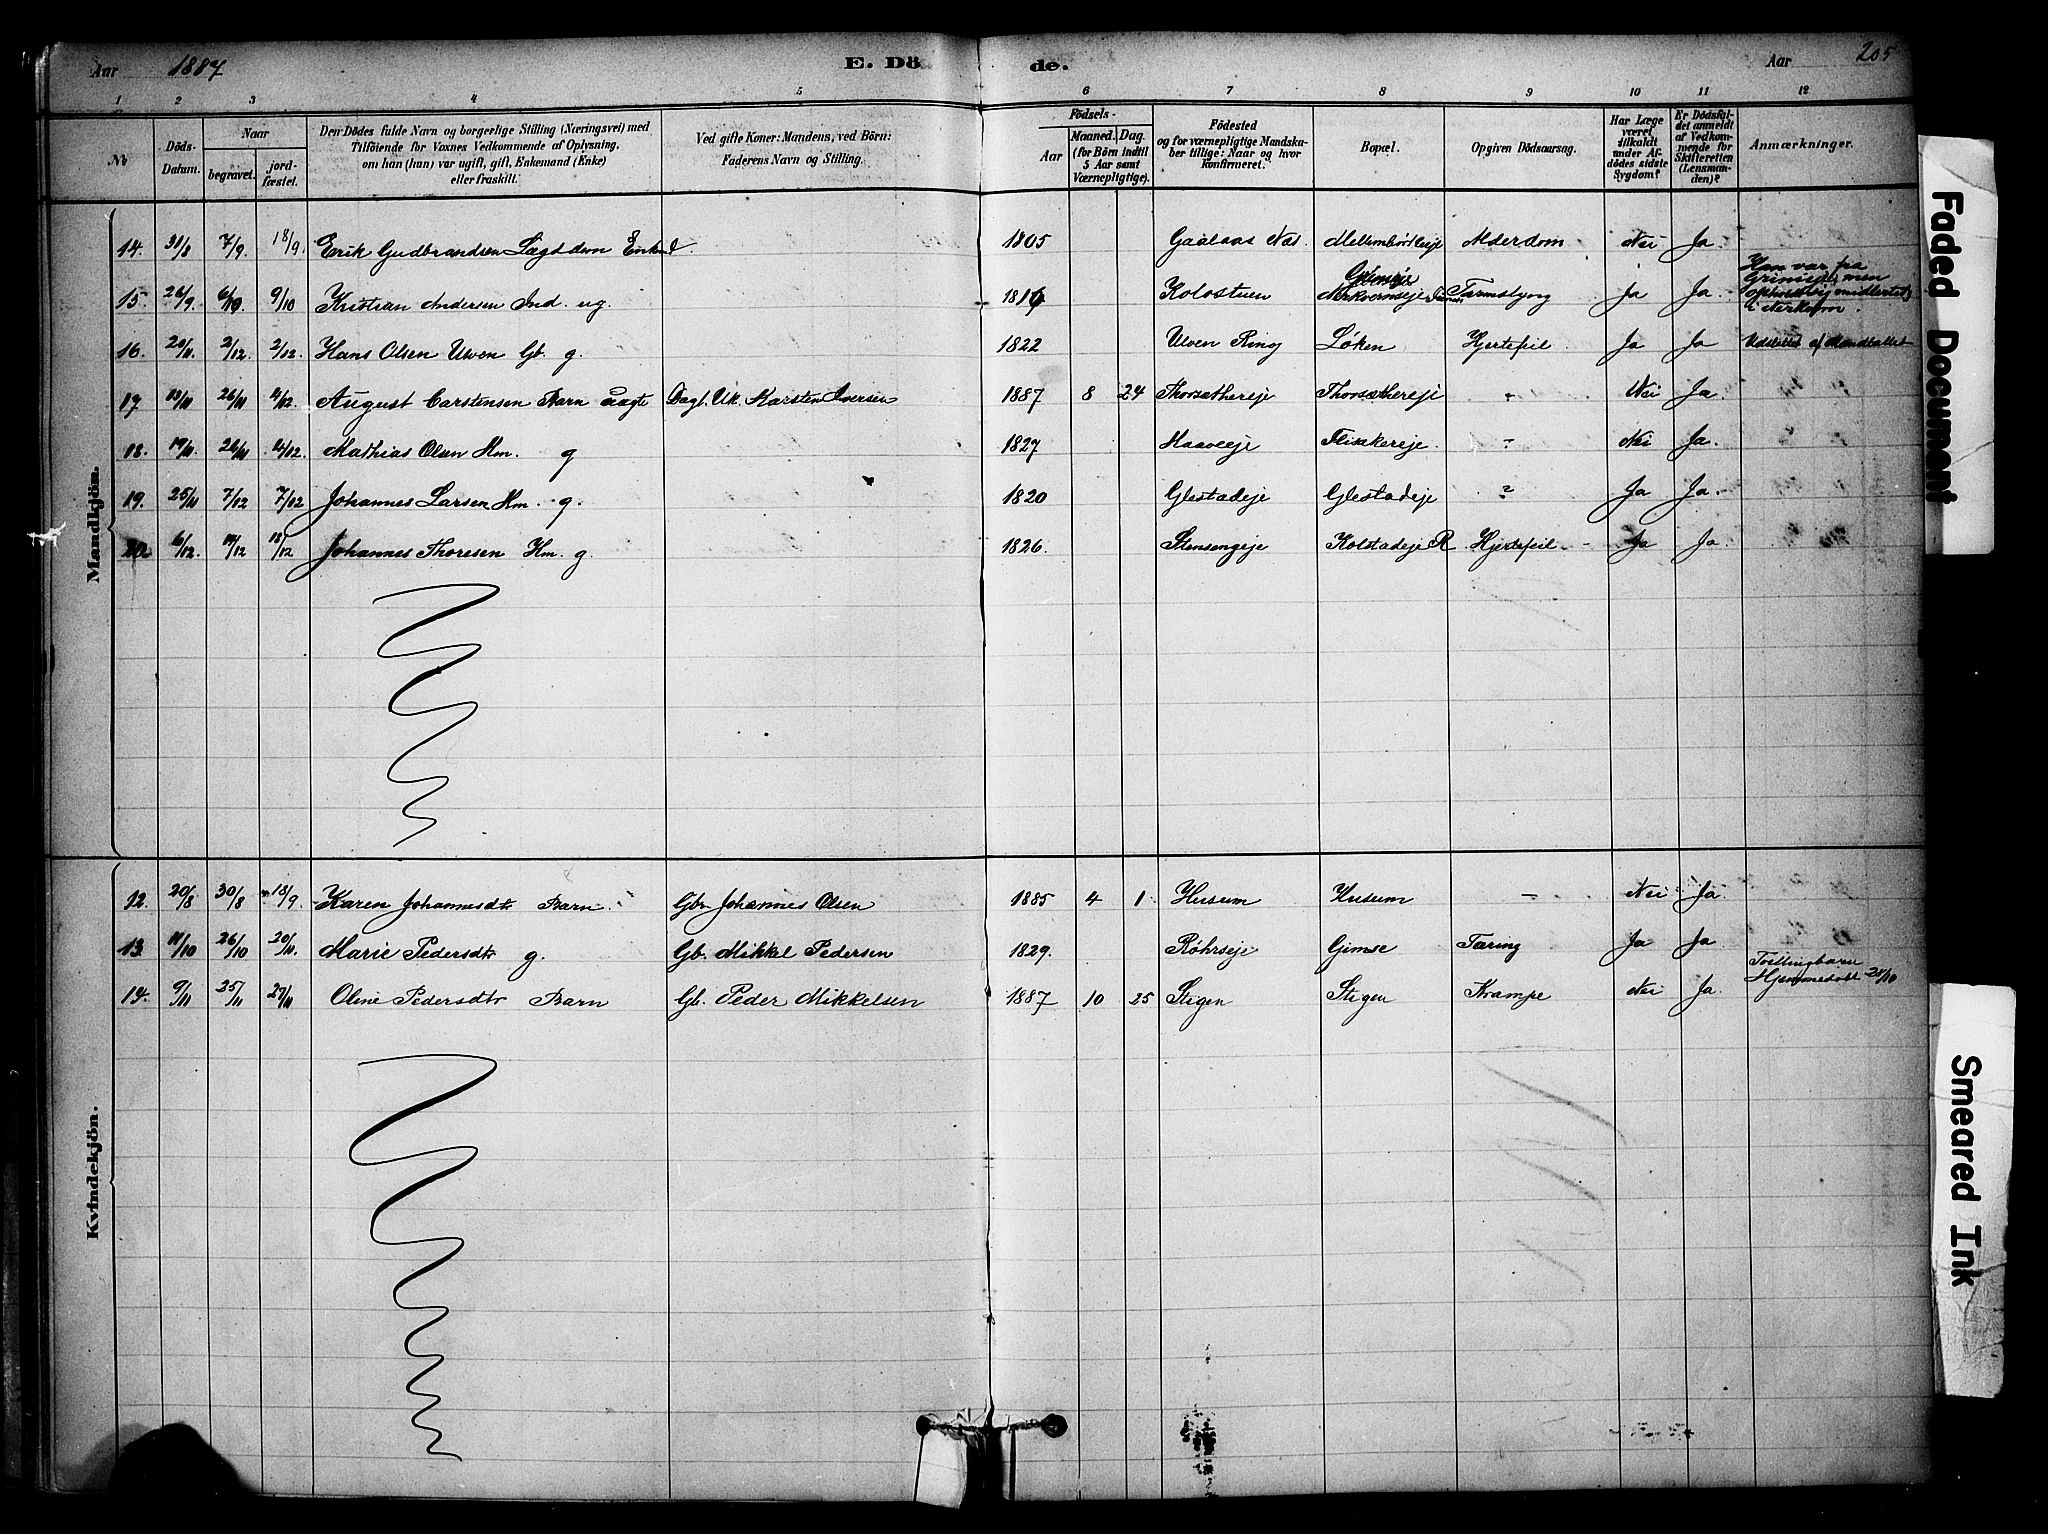 Aar 1887 E. Dö de. Aar 205
1 2 3 4 5 6 7 8 9 10 11 12
No
Döds-Datum.
Naar
begravet.
jordfæstet.
Den Dödes fulde Navn og borgerlige Stilling (Næringsvei) med
Tilföiende for Voxnes Vedkommende af Oplysning,
om han (hun) var ugift, gift, Enkemand (Enke)
eller fraskilt.
Ved gifte Koner: Mandens, ved Börn:
Faderens Navn og Stilling.
Födsels-
Aar
Maaned. Dag.
(for Börn indtil
5 Aar samt
Værnepligtige).
Födested
og for værnepligtige Mandska-
ber tillige: Naar og hvor
konfirmeret.
Bopæl.
Opgiven Dödsaarsag.
Har Læge
været
tilkaldt
under Af-
dödes sidste
Sygdom?
Er Dödsfal-
det anmeldt
af Vedkom-
mende for
Skifteretten
(Lensman-
den)?
Anmærkninger.
Mandkjön.
14. 31/8 7/9 18/9 Erik Gudbrandsen Lægdslem Enkem. 1805 Gaalaas Næs. Alderdom Nei Ja
15. 26/9 6/10 9/10 Kristian Andersen Ind. ug. Kolostuen Tarmslyng Ja Ja. Han var fra
men
opholdt sig midlertidig
i
16. 20/11 2/12. 2/12. Hans Olsen Ulven Gb. g. 1822 Ulven Ring Løken Hjertefeil Ja Ja Udslettet af Mandtallet
17. 13/11 26/11 4/12. August Carstensen Barn uægte Dagl. Uk. Karsten Iversen 1887 8 24 Thorsæthereje Thorsæthereje - Nei Ja.
18. 19/11. 26/11 4/12. Mathias Olsen Hm. g 1827 Haaveeje Flikkereje. - Nei Ja.
19. 25/11 7/12 7/12 Johannes Larsen Hm. g. 1820 Glestadeje Glestadeje ? Ja Ja.
20. 6/12. 14/12 18/12 Johannes Thoresen Hm. g. 1826. Stensengeje Kolstadeje R. Hjertefeil - Ja Ja
Kvindekjön.
12. 20/8 30/8 18/9 Karen Johannesdtr Barn. Gbr. Johannes Olsen 1885 4 1 Husum Husum - Nei Ja.
13. 14/10 26/10 20/11. Marie Pedersdtr g. Gb. Mikkel Pedersen 1829. Røhrseje Gimse Tæring Ja Ja
14. 9/11 25/11 27/11 Oline Pedersdtr Barn Gb. Peder Mikkelsen 1887 10 25 Stigen Stigen Krampe Nei Ja. Tvillingbarn
Hjemmedøbt 25/10
Faded Document
Smeared Ink